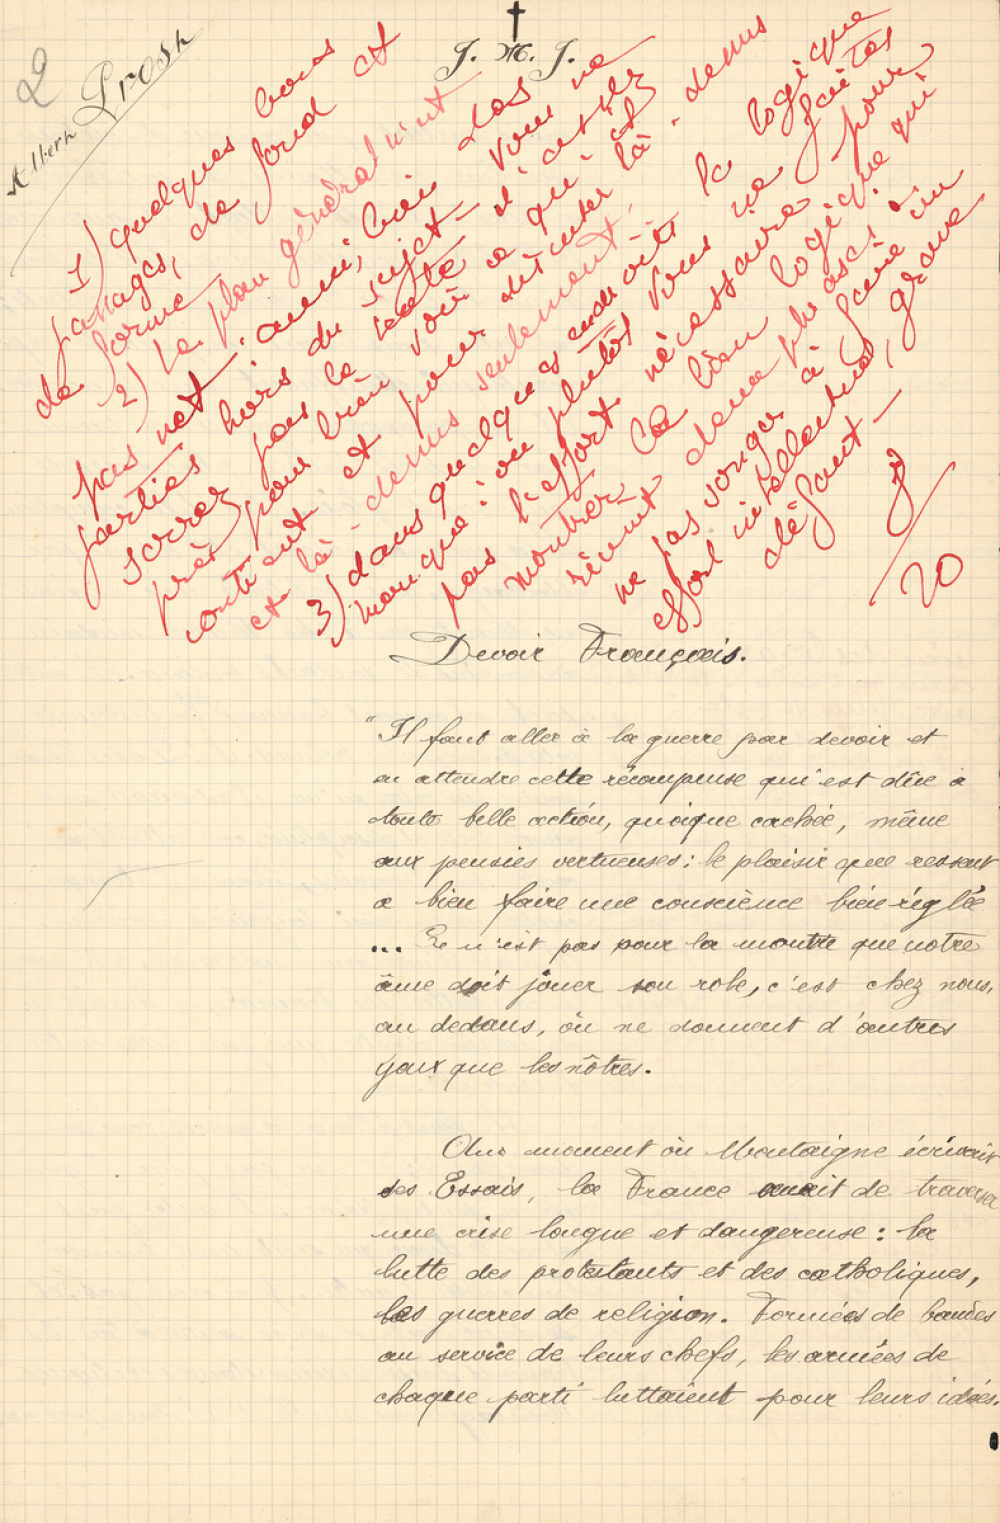 2
J. M. J.
Albert Prosh
1) quelques bons
passages, de fond et
de forme
2) Le plan général n'est
pas net : aussi, bien des
parties hors du sujet -
serrez pas le texte d'assez
près pour bien voir ce qui est
contenu et pour discuter là-dessus
et là-dessus seulement.
3) dans quelques endroits la logique
manque : ou plutôt vous ne faites
pas l'effort nécessaire pour
montrer le lien logique qui
réunit deux phrases :
ne pas songer à faire un
effort intellectuel, grave
défaut -
/20
Devoir Français.
"Il faut aller à la guerre par devoir et
en attendre cette récompense qui est dûe à
toute belle action, quoique cachée, même
aux pensées vertueuses : le plaisir que ressent
a bien faire une conscience bien réglée
... Ce n'est pas pour la montre que notre
âme doit jouer son role, c'est chez nous,
au dedans, où ne donnent d'autres
yeux que les nôtres.
Au moment où Montaigne écrivait
ses Essais, la France venait de traverser
une crise longue et dangereuse : la
lutte des protestants et des catholiques,
les guerres de religion. Formées de bandes
au service de leurs chefs, les armées de
chaque parti luttaient pour leurs idées.